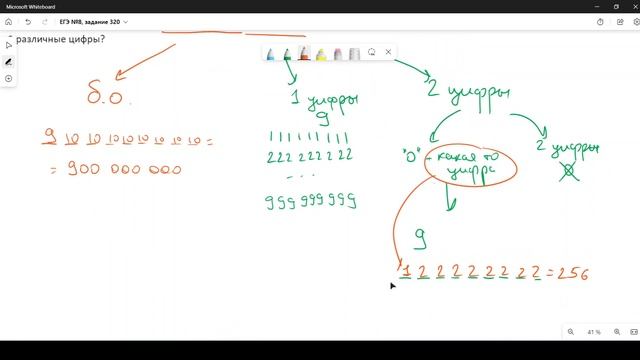 Microsoft Whiteboard
ЕГЭ №8, задание 320
различные цифры?
б.о.
1 цифры
9
2 цифры
9 10 10 10 10 10 10 10 10 =
= 900 000 000
111111111
222 222 222
...
999 999 999
"0" - какая то цифра
2 цифры
0
9
1 2 2 2 2 2 2 2 2 = 256
41 %